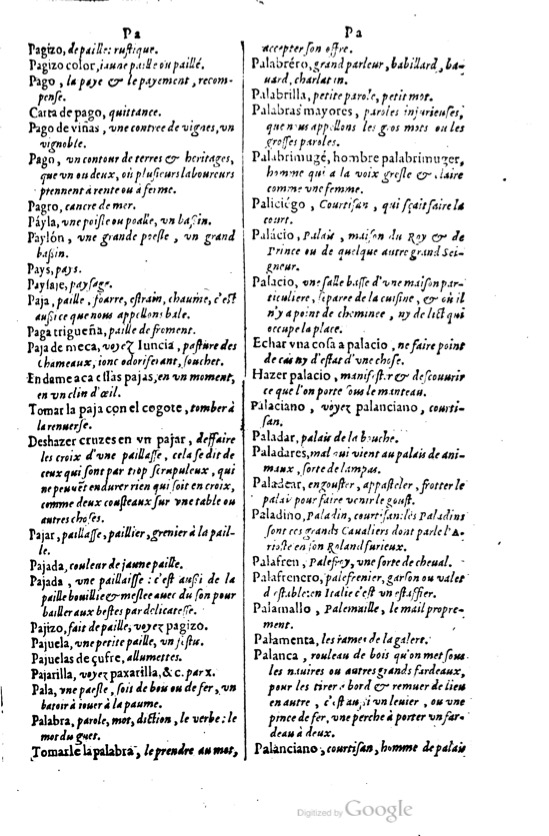 Pa
Pagizo, de paille: rustique.
Pagizo color, jaune paille ou paillé.
Pago, la paye & le payement, recom-
pense.
Carta de pago, quittance.
Pago de viñas, vne contree de vignes, vn
vignoble.
Pago, vn contour de terres & heritages,
que vn ou deux, où plusieurs laboureurs
prennent à rente ou à ferme.
Pagro, cancre de mer.
Páyla, vne poisle ou poalle, vn bassin.
Paylón, vne grande poesle, vn grand
bassin.
Pays, pays.
Paysaje, paysage.
Paja, paille, foarre, estrain, chaume, c'est
aussi ce que nous appellons bale.
Paga trigueña, paille de froment.
Paja de meca, voyez Iuncia, pasture des
chameaux, ionc odoriferant, souchet.
En dame aca essas pajas, en vn moment,
en vn clin d'œil.
Tomar la paja con el cogote, tomber à
la renuerse.
Deshazer cruzes en vn pajar, deffaire
les croix d'vne paillasse, cela se dit de
ceux qui sont par trop scrupuleux, qui
ne peuuēt endurer rien qui soit en croix,
comme deux cousteaux sur vne table ou
autres choses.
Pajar, paillasse, paillier, grenier à la pail-
le.
Pajada, couleur de jaune paille.
Pajada, vne paillaisse: c'est aussi de la
paille bouillie & meslee auec du son pour
bailler aux bestes par delicatesse.
Pajizo, fait de paille, voyez pagizo.
Pajuela, vne petite paille, vn festu.
Pajuelas de çufre, allumettes.
Pajarilla, voyez paxarilla, &c. par x.
Pala, vne paesle, soit de bois ou de fer, vn
batoir à iouer à la paume.
Palabra, parole, mot, diction, le verbe: le
mot du guet.
Tomarle la palabra, le prendre au mot,
Pa
accepter son offre.
Palabréro, grand parleur, babillard, ba-
uard, charlatan.
Palabrilla, petite parole, petit mot.
Palabras mayores, paroles injurieuses,
que nous appellons les gros mots ou les
grosses paroles.
Palabrimugé, hombre palabrimuger,
homme qui a la voix gresle & claire
comme vne femme.
Paliciégo, Courtisan, qui sçait faire la
court.
Palácio, Palais, maison du Roy & de
Prince ou de quelque autre grand Sei-
gneur.
Palacio, vne salle basse d'vne maison par-
ticuliere, separee de la cuisine, & où il
n'y a point de cheminee, ny de lict qui
occupe la place.
Echar vna cosa a palacio, ne faire point
de cas ny d'estat d'vne chose.
Hazer palacio, manifester & descouurir
ce que l'on porte sous le manteau.
Palaciano, voyez palanciano, courti-
san.
Paladar, palais de la bouche.
Paladares, mal qui vient au palais de ani-
maux, sorte de lampas.
Paladear, engouster, appasteler, frotter le
palai pour faire venir le goust.
Paladino, Paladin, courtisan: les Paladins
sont ces grands Caualiers dont parle l'A-
rioste en son Roland furieux.
Palafren, Palefroy, vne sorte de cheual.
Palafrenero, palefrenier, garson ou valet
d'estable: en Italie c'est vn estaffier.
Palamallo, Palemaille, le mail propre-
ment.
Palamenta, les rames de la galere.
Palanca, rouleau de bois qu'on met sous
les nauires ou autres grands fardeaux,
pour les tirer à bord & remuer de lieu
en autre, c'est aussi vn leuier, ou vne
pince de fer, vne perche à porter vn far-
deau à deux.
Palanciano, courtisan, homme de palais
Digitized by Google